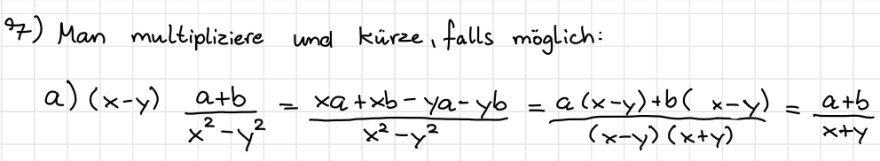 97) Man multipliziere und kürze, falls möglich:
a) (x-y) \frac{a+b}{x²-y²} = \frac{xa+xb-ya-yb}{x²-y²} = \frac{a(x-y)+b( x-y)}{(x-y)(x+y)} = \frac{a+b}{x+y}